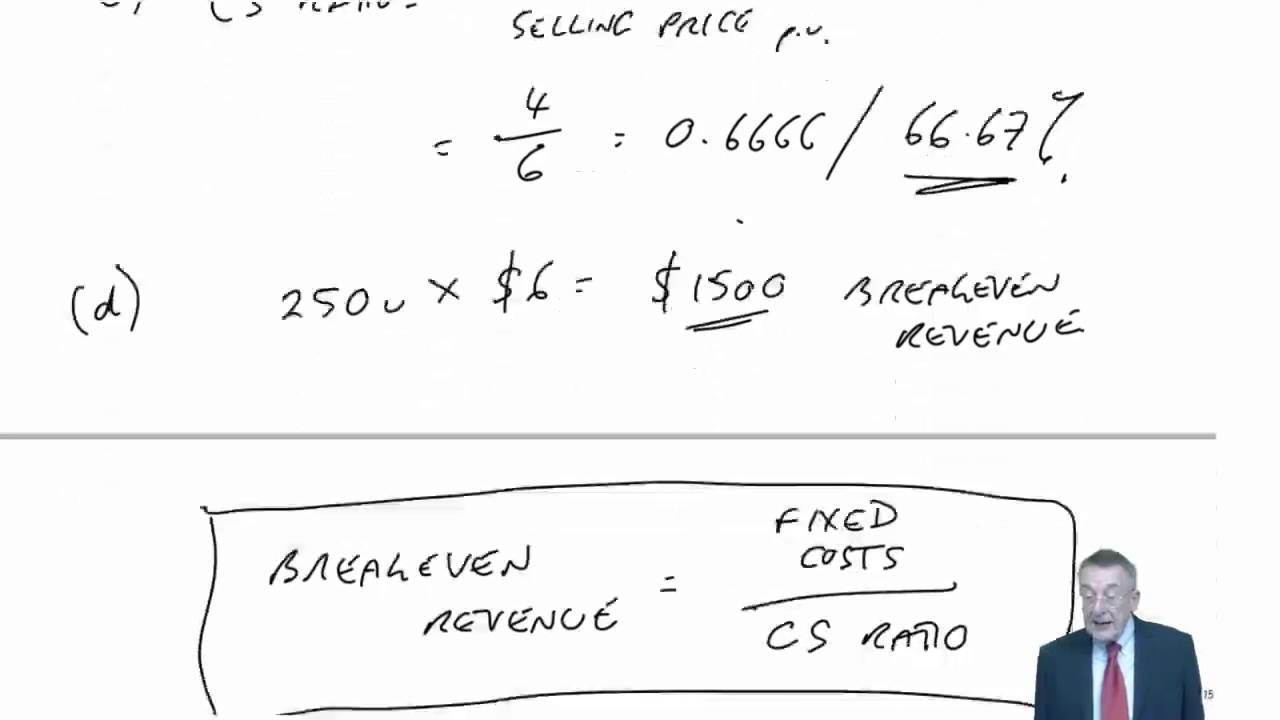 CS RATIO =
SELLING PRICE p.u.
= 4/6 = 0.6666 / 66.67%
(d) 250 u × $6 = $1500 BREAKEVEN
REVENUE
BREAKEVEN
REVENUE = FIXED
COSTS
CS RATIO
15